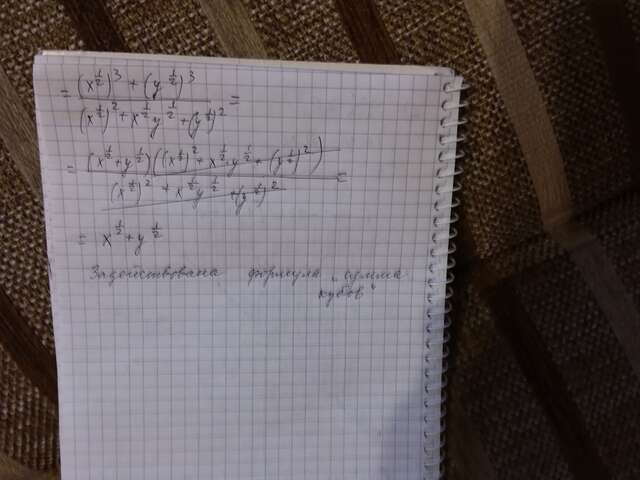 = ((x^{1/2})^3 + (y^{1/2})^3) / ((x^{1/2})^2 + x^{1/2} y^{1/2} + (y^{1/2})^2) =
= ((x^{1/2} + y^{1/2})((x^{1/2})^2 + x^{1/2} y^{1/2} + (y^{1/2})^2)) / ((x^{1/2})^2 + x^{1/2} y^{1/2} + (y^{1/2})^2) =
= x^{1/2} + y^{1/2}
Задействована формула „сумма
кубов"